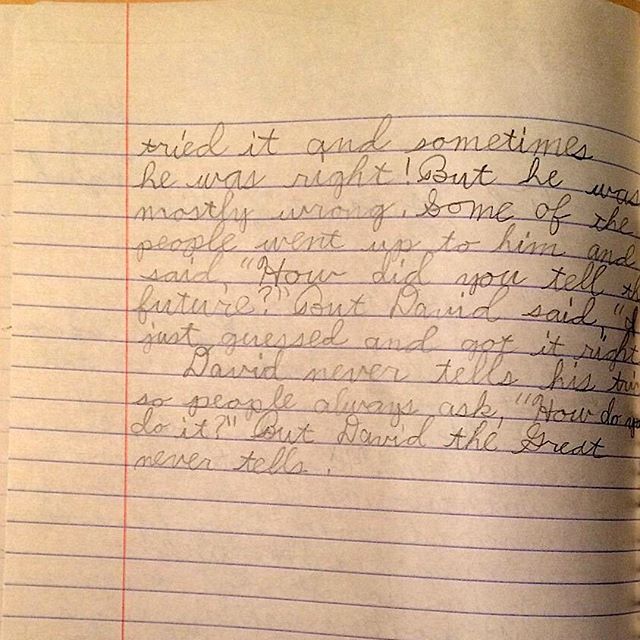 tried it and sometimes
he was right! But he was
mostly wrong. Some of the
people went up to him and
said, "How did you tell th
future?" But David said, "I
just guessed and got it right
David never tells his tri
so people always ask, "How do yo
do it?" But David the Great
never tells!